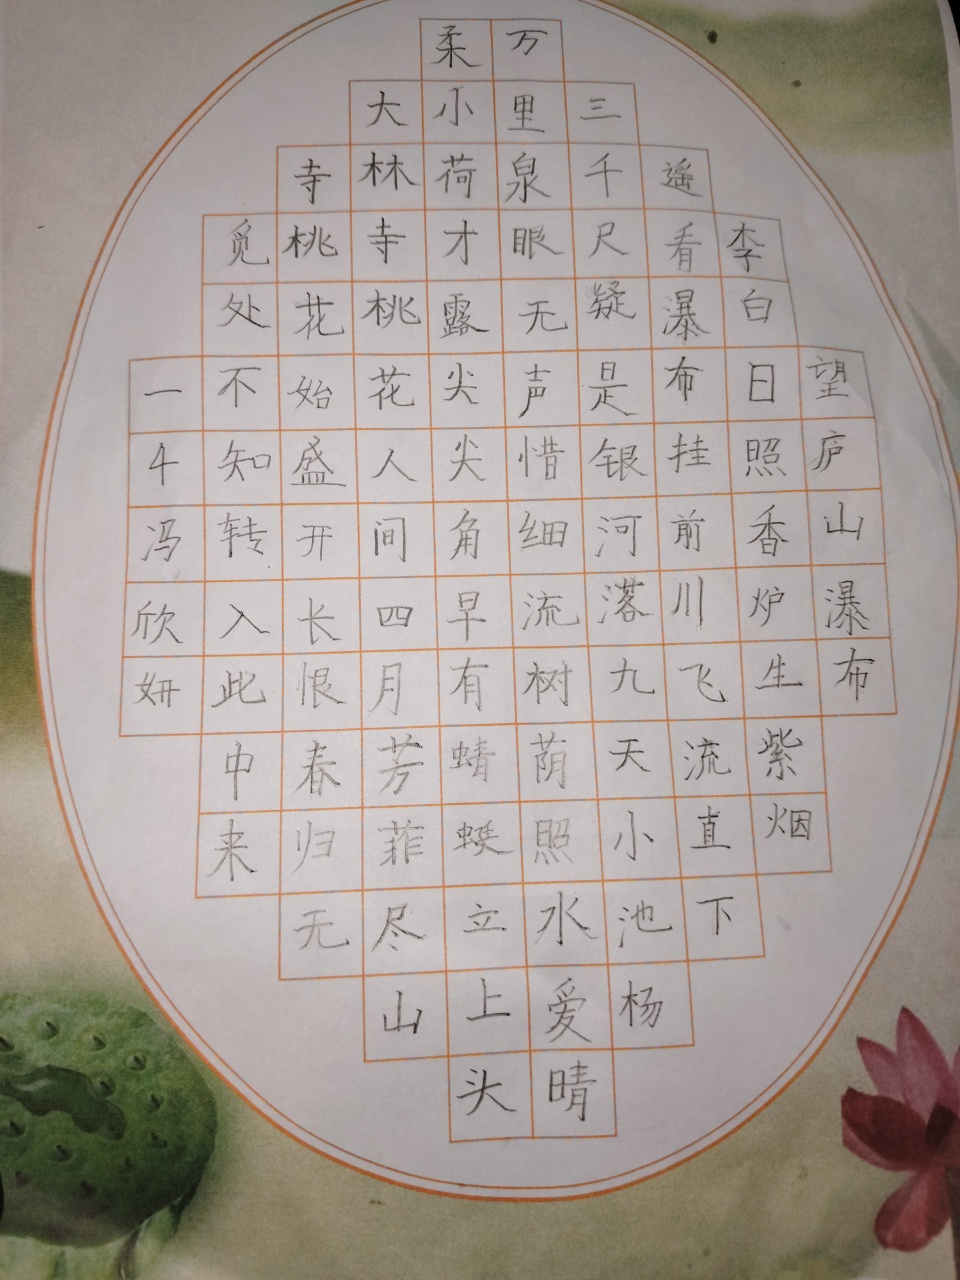 望庐山瀑布
李白日照香炉生紫烟
遥看瀑布挂前川飞流直下
三千尺疑是银河落九天小池杨
万里泉眼无声惜细流树荫照水爱晴
柔小荷才露尖尖角早有蜻蜓立上头
大林寺桃花人间四月芳菲尽山
寺桃花始盛开长恨春归无
觅处不知转入此中来
一4冯欣妍